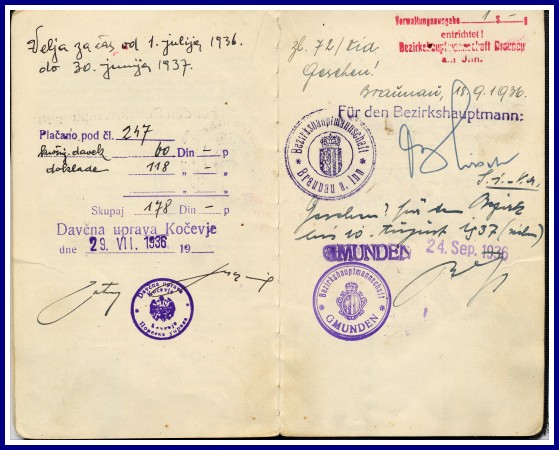 Velja za čas od 1. julija 1936.
do 30. junija 1937.
Plačano pod čl. 247
davek 60 Din – p
doklade 118 „ – „
Skupaj 178 Din – p
Davčna uprava Kočevje
dne 29. VII. 1936 19
Davčna uprava
Kočevje
Verwaltungsausgabe 1 S – g
entrichtet!
Bezirkshauptmannschaft Braunau
am Inn.
zl. 72/
Gesehen!
Braunau, 18.9.1936.
Für den Bezirkshauptmann:
* Bezirkshauptmannschaft *
Braunau a. Inn
Gesehen! für den Bezirk
bis 10. August 1937
GMUNDEN 24. Sep. 1936
* Bezirkshauptmannschaft *
GMUNDEN